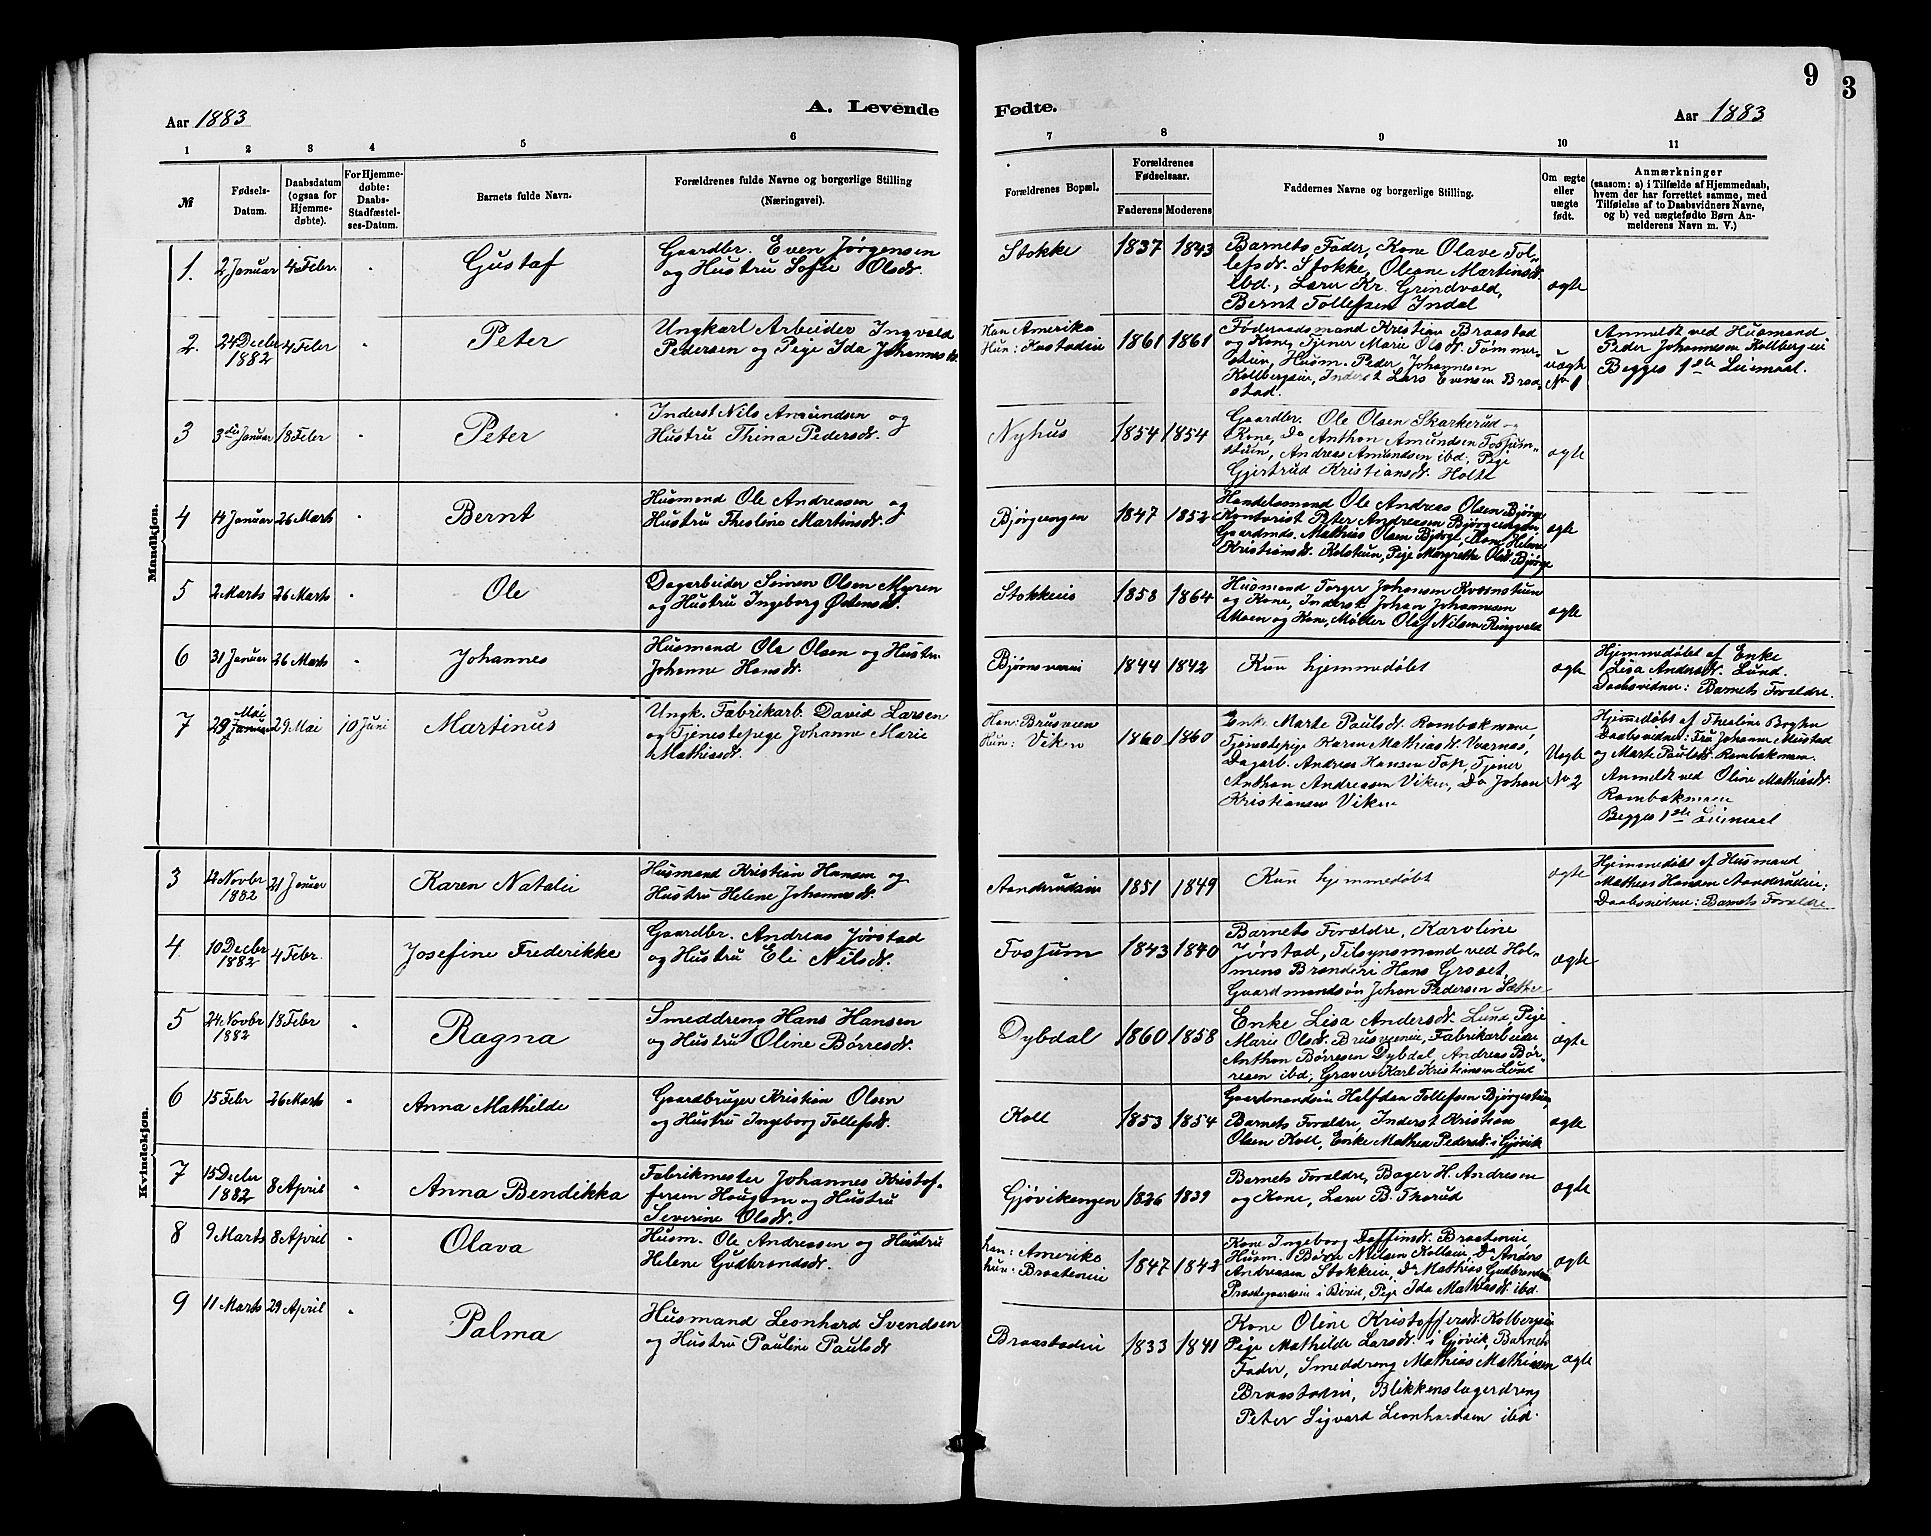 9
3
Aar 1883
A. Levende
Fødte.
Aar 1883
1 2 3 4 5 6 7 8 9 10 11
№
Fødsels-
Datum.
Daabsdatum
(ogsaa for
Hjemme-
døbte).
For Hjemme-
døbte:
Daabs-
Stadfæstel-
ses-Datum.
Barnets fulde Navn.
Forældrenes fulde Navne og borgerlige Stilling
(Næringsvei).
Forældrenes Bopæl.
Forældrenes
Fødselsaar.
Faderens Moderens
Faddernes Navne og borgerlige Stilling.
Om ægte
eller
uægte
født.
Anmærkninger
(saasom: a) i Tilfælde af Hjemmedaab,
hvem der har forrettet samme, med
Tilføielse af to Daabsvidners Navne,
og b) ved uægtefødte Børn An-
melderens Navn m. V.)
Mandkjøn.
1. 2 Januar 4 Febr. Gustaf
Gaardbr. Even Jørgensen
og Hustru Sofie Olsdr.
Stokke 1837 1843
Barnets Fader, Kone Olave Tol-
lefsdr. Stokke, Oleane Martinsdr.
ibd., Lærer Kr. Grindvold,
Bernt Tollefsen Indal
ægte
2. 24 Decbr 1882 4 Febr Peter
Ungkarl Arbeider Ingvald
Pedersen og Pige Ida Johannesdr
Han Amerika
Hun: Kastadeie
1861 1861
Føderaadsmand Kristian Braastad
og Kone, Tjener Marie Olsdr. Tømmer-
stuen, Husm. Peder Johannesen
Kolbergeie, Inderst Lars Evensen Braa-
stad.
uægte
No 1
Anmeldt ved Husmand
Peder Johannesen Kolbergeie
Begges 1ste Leiemaal.
3 3die Januar 18 Febr Peter
Inderst Nils Amundsen og
Hustru Thina Pedersdr.
Nyhus 1854 1854
Gaardbr. Ole Olsen Skarkerud og
Kone, Do Anthon Amundsen Fossum-
stuen, Andreas Amundsen ibd. Pige
Gjertrud Kristiansdr. Holte
ægte
4 14 Januar 26 Marts Bernt
Husmand Ole Andreasen og
Hustru Thesline Martinsdr.
Bjørgeengen 1847 1852
Handelsmand Ole Andreas Olsen Bjørge
Kontorist Peter Andreasen Bjørgeengen
Gaardmds. Mathias Olsen Bjørge, Kone Helene
Kristiansdr. Kolstuen, Pige Margrethe Olsdr. Bjørge
ægte
5 2 Marts 26 Marts Ole
Dagarbeider Simen Olsen Myren
og Hustru Ingeborg Østensdr.
Stokkeeie 1858 1864
Husmand Torger Johansen Kværnstuen
og Kone, Inderst Johan Johannesen
Moen og Kone, Møller Olaf Nilsen Ringvold
ægte
6 31 Januar 26 Marts Johannes
Husmand Ole Olsen og Hustru
Johanne Hansdr.
1844 1842
Kun hjemmedøbt
ægte
Hjemmedøbt af Enke
Lisa Andersdr. Lund.
Daabsvidner: Barnets Forældre.
7 29 Mai Januar 29 Mai 10 Juni Martinus
Ungk. Fabrikarb. David Larsen
og Tjenestepige Johanne Marie
Mathisdr.
Han: Brusveen
Hun: Viken
1860 1860
Enke Marte Paulsdr. Rambekmoen,
Tjenestepige Karen Mathiasdr. Vearnæs,
Dagarb. Andreas Hansen Tøp, Tjener
Anthon Andreassen Viken, Do Johan
Kristiansen Viken
Uægte
No 2
Hjemmedøbt af Thealine Boghn
Daabsvidner: Fru Johanne Mustad
og Marte Paulsdr. Rambekmoen.
Anmeldt ved Oline Mathisdr.
Rambekmoen
Begges 1ste Leiemaal
Kvindekjøn.
3 12 Novbr 1882 21 Januar Karen Natalie
Husmand Kristian Hansen og
Hustru Helene Johannesdr.
Aanderudeie 1851 1849
Kun hjemmedøbt
ægte
Hjemmedøbt af Husmand
Mathias Hansen Aanderudeie;
Daabsvidner: Barnets Forældre
4 10 Decbr 1882 4 Febr. Josefine Frederikke
Gaardbr. Andreas Jørstad
og Hustru Eli Nilsdr.
Fossum 1843 1840
Barnets Forældre, Karoline
Jørstad, Tilsynsmand ved Hol-
mens Brænderi Hans Graaet,
Gaardmandsøn Johan Pedersen Sæthre
ægte
5 24 Novbr 1882 18 Febr Ragna
Smeddreng Hans Hansen
og Hustru Oline Børresdr.
Dybdal 1860 1858
Enke Lisa Andersdr. Lund, Pige
Marie Olsdr. Brusveeneie, Fabrikarbeider
Anthon Børresen Dybdal, Andreas Bør-
resen ibd, Graver Karl Kristiansen Lund
ægte
6 15 Febr 26 Marts Anna Mathilde
Gaardbruger Kristian Olsen
og Hustru Ingeborg Tollefsdr.
Koll 1853 1854
Gaardmandsøn Halfdan Tollefsen Bjørgestuen,
Barnets Forældre, Inderst Kristian
Olsen Koll, Enke Mathea Pedersdr. i Gjøvik
ægte
7 15 Decbr 1882 8 April Anna Bendikka
Fabrikmester Johannes Kristof-
fersen Haugom og Hustru
Severine Olsdr.
Gjøvikengen 1826 1839
Barnets Forældre, Bager H. Andresen
og Kone, Lærer B. Thorud
ægte
8 9 Marts 8 April Olava
Husm. Ole Andreassen og Hustru
Helene Gudbrandsdr.
han: Amerika
hun: Braateneie
1847 1842
Kone Ingeborg Daffinsdr. Braateneie
Husm. Børre Nielsen Kolleeie, Do Anders
Andreasen Stokkeeie, Do Mathias Gudbrandsen
Præstegaardseie i Biri, Pige Ida Mathiasdr. ibd.
ægte
9 11 Marts 29 April Palma
Husmand Leonhard Svendsen
og Hustru Pauline Paulsdr
Braastadeie 1833 1841
Kone Oline Kristoffersdr. Kolbergeie
Pige Mathilde Larsdr. i Gjøvik, Barnets
Fader, Smeddreng Mathias Mathisen
Braastadeie, Blikkenslagerdreng
Peter Sigvard Leonhardsen ibd.
ægte